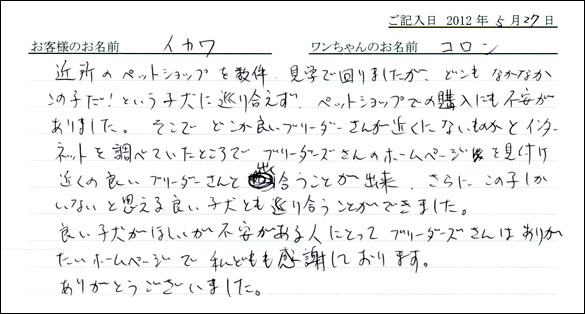 ご記入日 2012年5月27日
お客様のお名前 イカワ ワンちゃんのお名前 コロン
近所のペットショップを数件、見学で回りましたが、どこもなかなか
この子だ!という子犬に巡り合えず、ペットショップでの購入にも不安が
ありました。そこでどこか良いブリーダーさんが近くにないものかとインター
ネットを調べていたところで ブリーダーズさんのホームページを見付け
近くの良いブリーダーさんと出合うことが出来、さらにこの子しか
いないと思える良い子犬とも巡り合うことができました。
良い子犬がほしいが不安がある人にとって ブリーダーズさんはありが
たいホームページで私どもも感謝しております。
ありがとうございました。